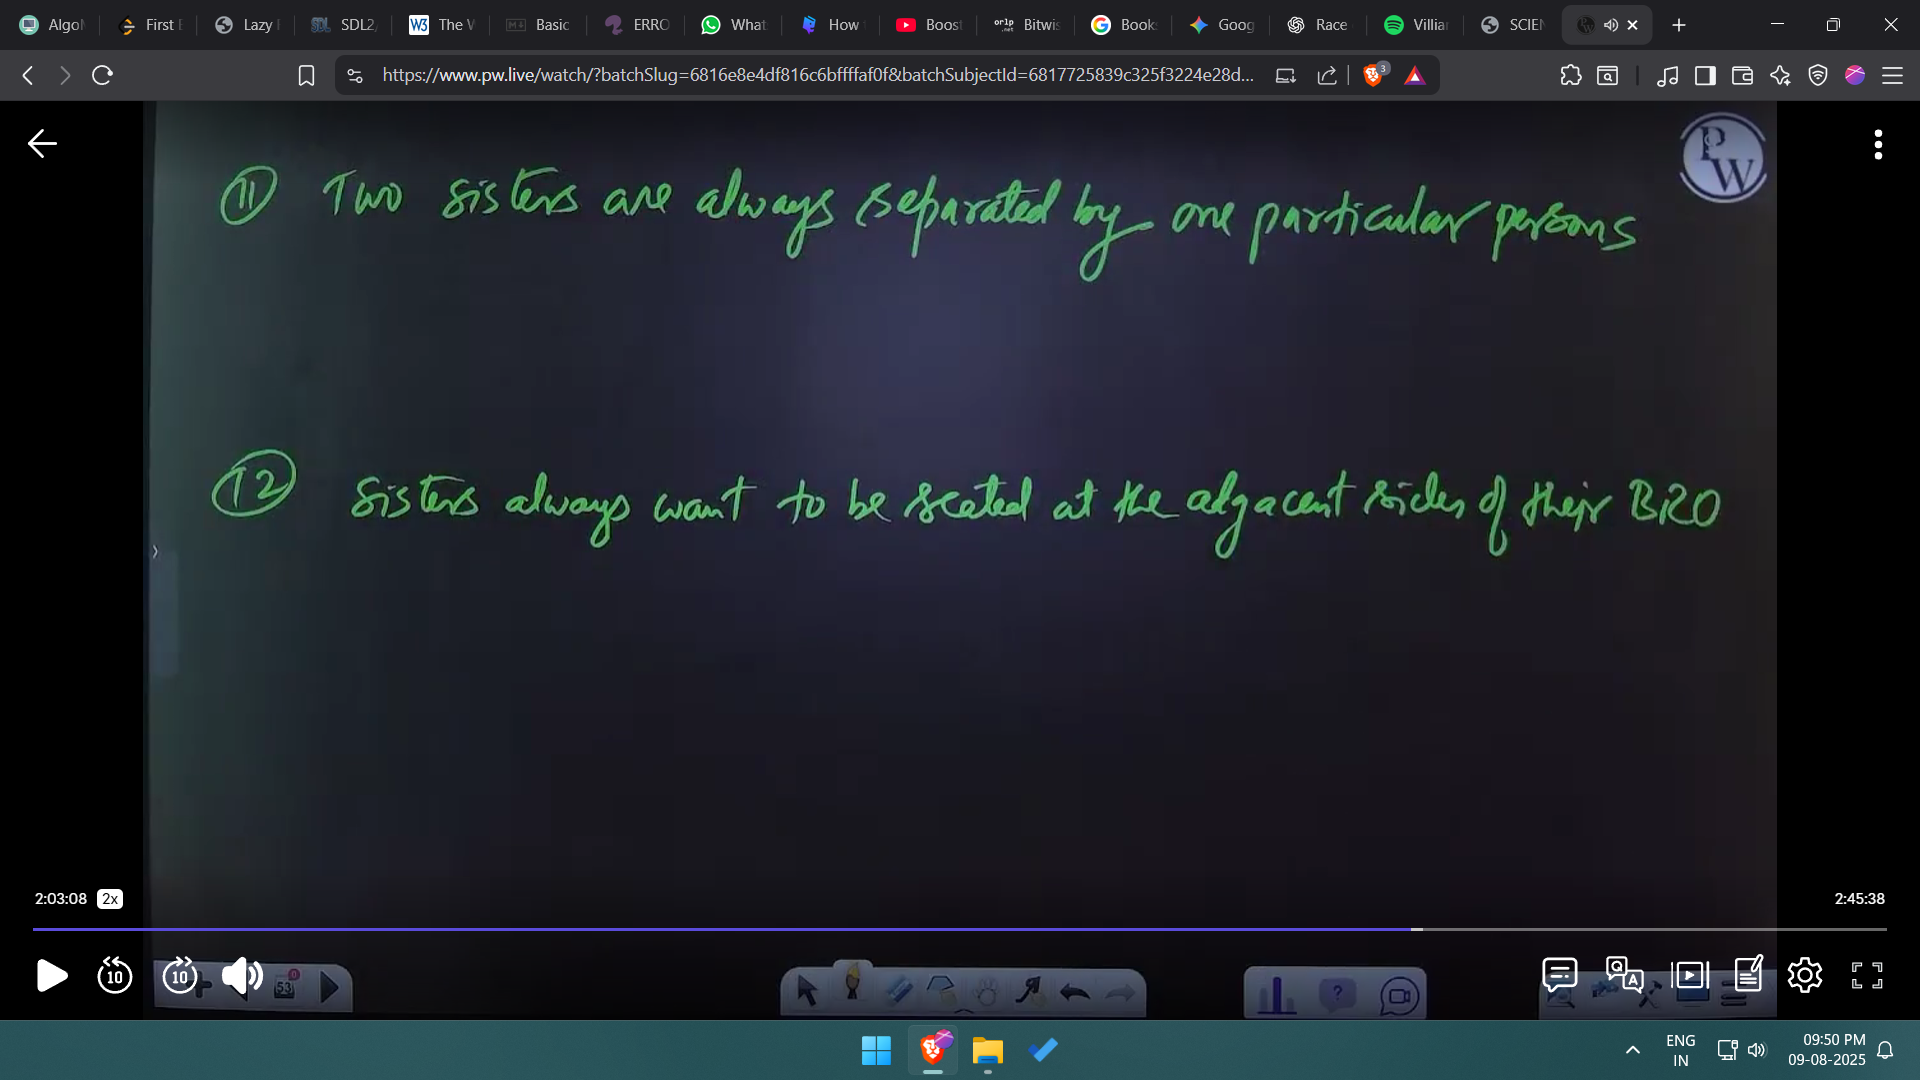 Algo
First E
Lazy
SDL2
The W
Basic
ERRO
What
How
Boost
Bitwis
Book
Goog
Race
Villiar
SCIEN
https://www.pw.live/watch/?batchSlug=6816e8e4df816c6bffffaf0f&batchSubjectId=6817725839c325f3224e28d...
3
PW
11 Two sisters are always separated by one particular persons
12 Sisters always want to be seated at the adjacent sides of their BRO
2:03:08 2x
2:45:38
10
10
53
?
Q A
ENG
IN
09:50 PM
09-08-2025